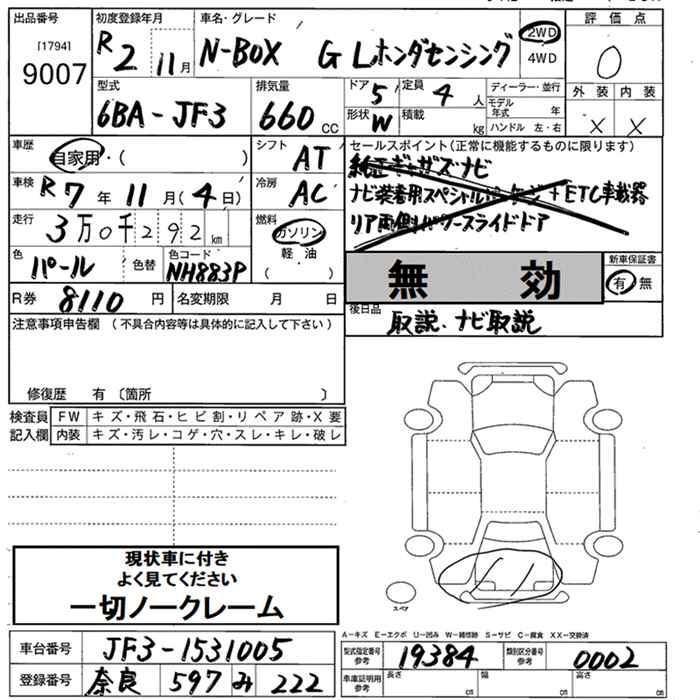 出品番号
[1794]
9007
初度登録年月
R2 11月
車名・グレード
N-BOX GLホンダセンシング
2WD
4WD
評価点
0
型式
6BA-JF3
排気量
660 CC
ドア 5
定員 4 人
形状 W
積載 kg
ディーラー・並行
モデル年式 年
ハンドル 左・右
外装 内装
× ×
車歴
自家用・( )
シフト AT
車検 R7年 11月(4日)
冷房 AC
走行 3万0千292km
燃料
ガソリン
軽油
( )
色 パール
色替
色コード NH883P
R券 8110 円
名変期限 月 日
セールスポイント(正常に機能するものに限ります)
純正ギャザズナビ
ナビ装着用スペシャルパッケージ+ETC車載器
リア両側パワースライドドア
無効
新車保証書
有 無
後日品
取説、ナビ取説
注意事項申告欄(不具合内容等は具体的に記入して下さい)
修復歴 有 〔箇所 〕
検査員記入欄
FW キズ・飛石・ヒビ割・リペア跡・X要
内装 キズ・汚レ・コゲ・穴・スレ・キレ・破レ
現状車に付き
よく見てください
一切ノークレーム
スペア
A-キズ E-エクボ U-凹み W-補修跡 S-サビ C-腐食 XX-交換済
車台番号 JF3-1531005
登録番号 奈良 597 み 222
型式指定番号 参考 19384
類別区分番号 参考 0002
車庫証明用 参考
長さ cm
幅 cm
高さ cm